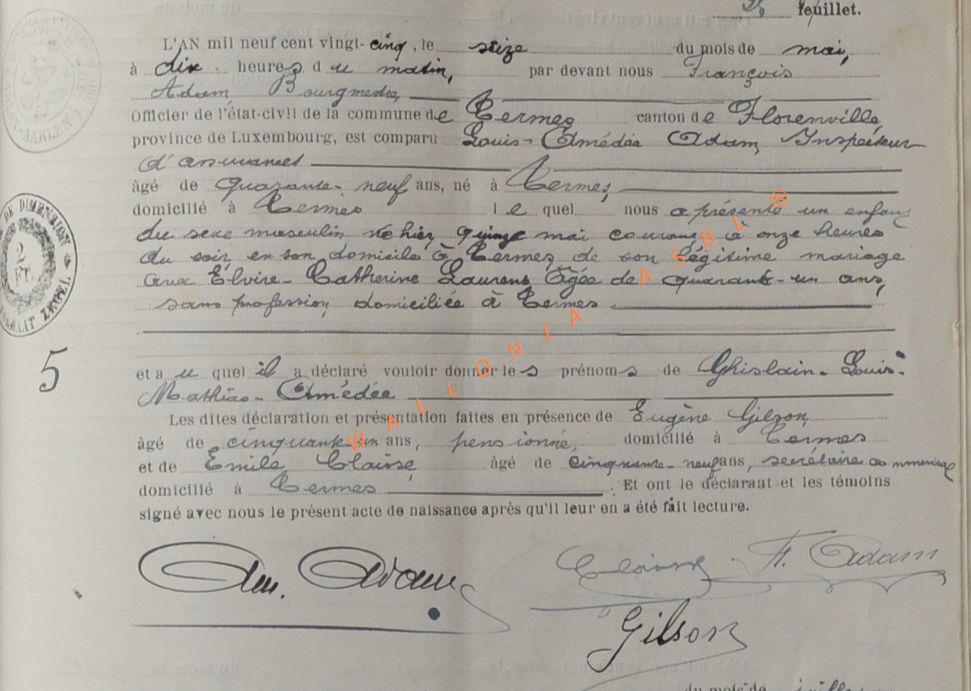 feuillet.
L'AN mil neuf cent vingt-cinq, le seize du mois de mai,
à dix heures du matin, par devant nous François
Adam Bourgmestre,
officier de l'état-civil de la commune de Termes canton de Florenville
province de Luxembourg, est comparu Louis-Amédée Adam, Inspecteur
d'assurances
âgé de quarante-neuf ans, né à Termes,
domicilié à Termes lequel nous a présenté un enfant
du sexe masculin né hier, quinze mai courant à onze heures
du soir, en son domicile à Termes de son légitime mariage
avec Elvire-Catherine Laurent âgée de quarante-un ans,
sans profession, domiciliée à Termes
5
et auquel il a déclaré vouloir donner les prénoms de Ghislain-Louis-
Mathias-Amédée
Les dites déclaration et présentation faites en présence de Eugène Gilson,
âgé de cinquante un ans, pensionné, domicilié à Termes
et de Emile Claisse, âgé de cinquante-neuf ans, secrétaire communal
domicilié à Termes. Et ont le déclarant et les témoins
signé avec nous le présent acte de naissance après qu'il leur en a été fait lecture.
Am. Adam
F. Adam
Gilson
WALLONIA ASBL ®
DE DIMENSION
2
FR.
du mois de